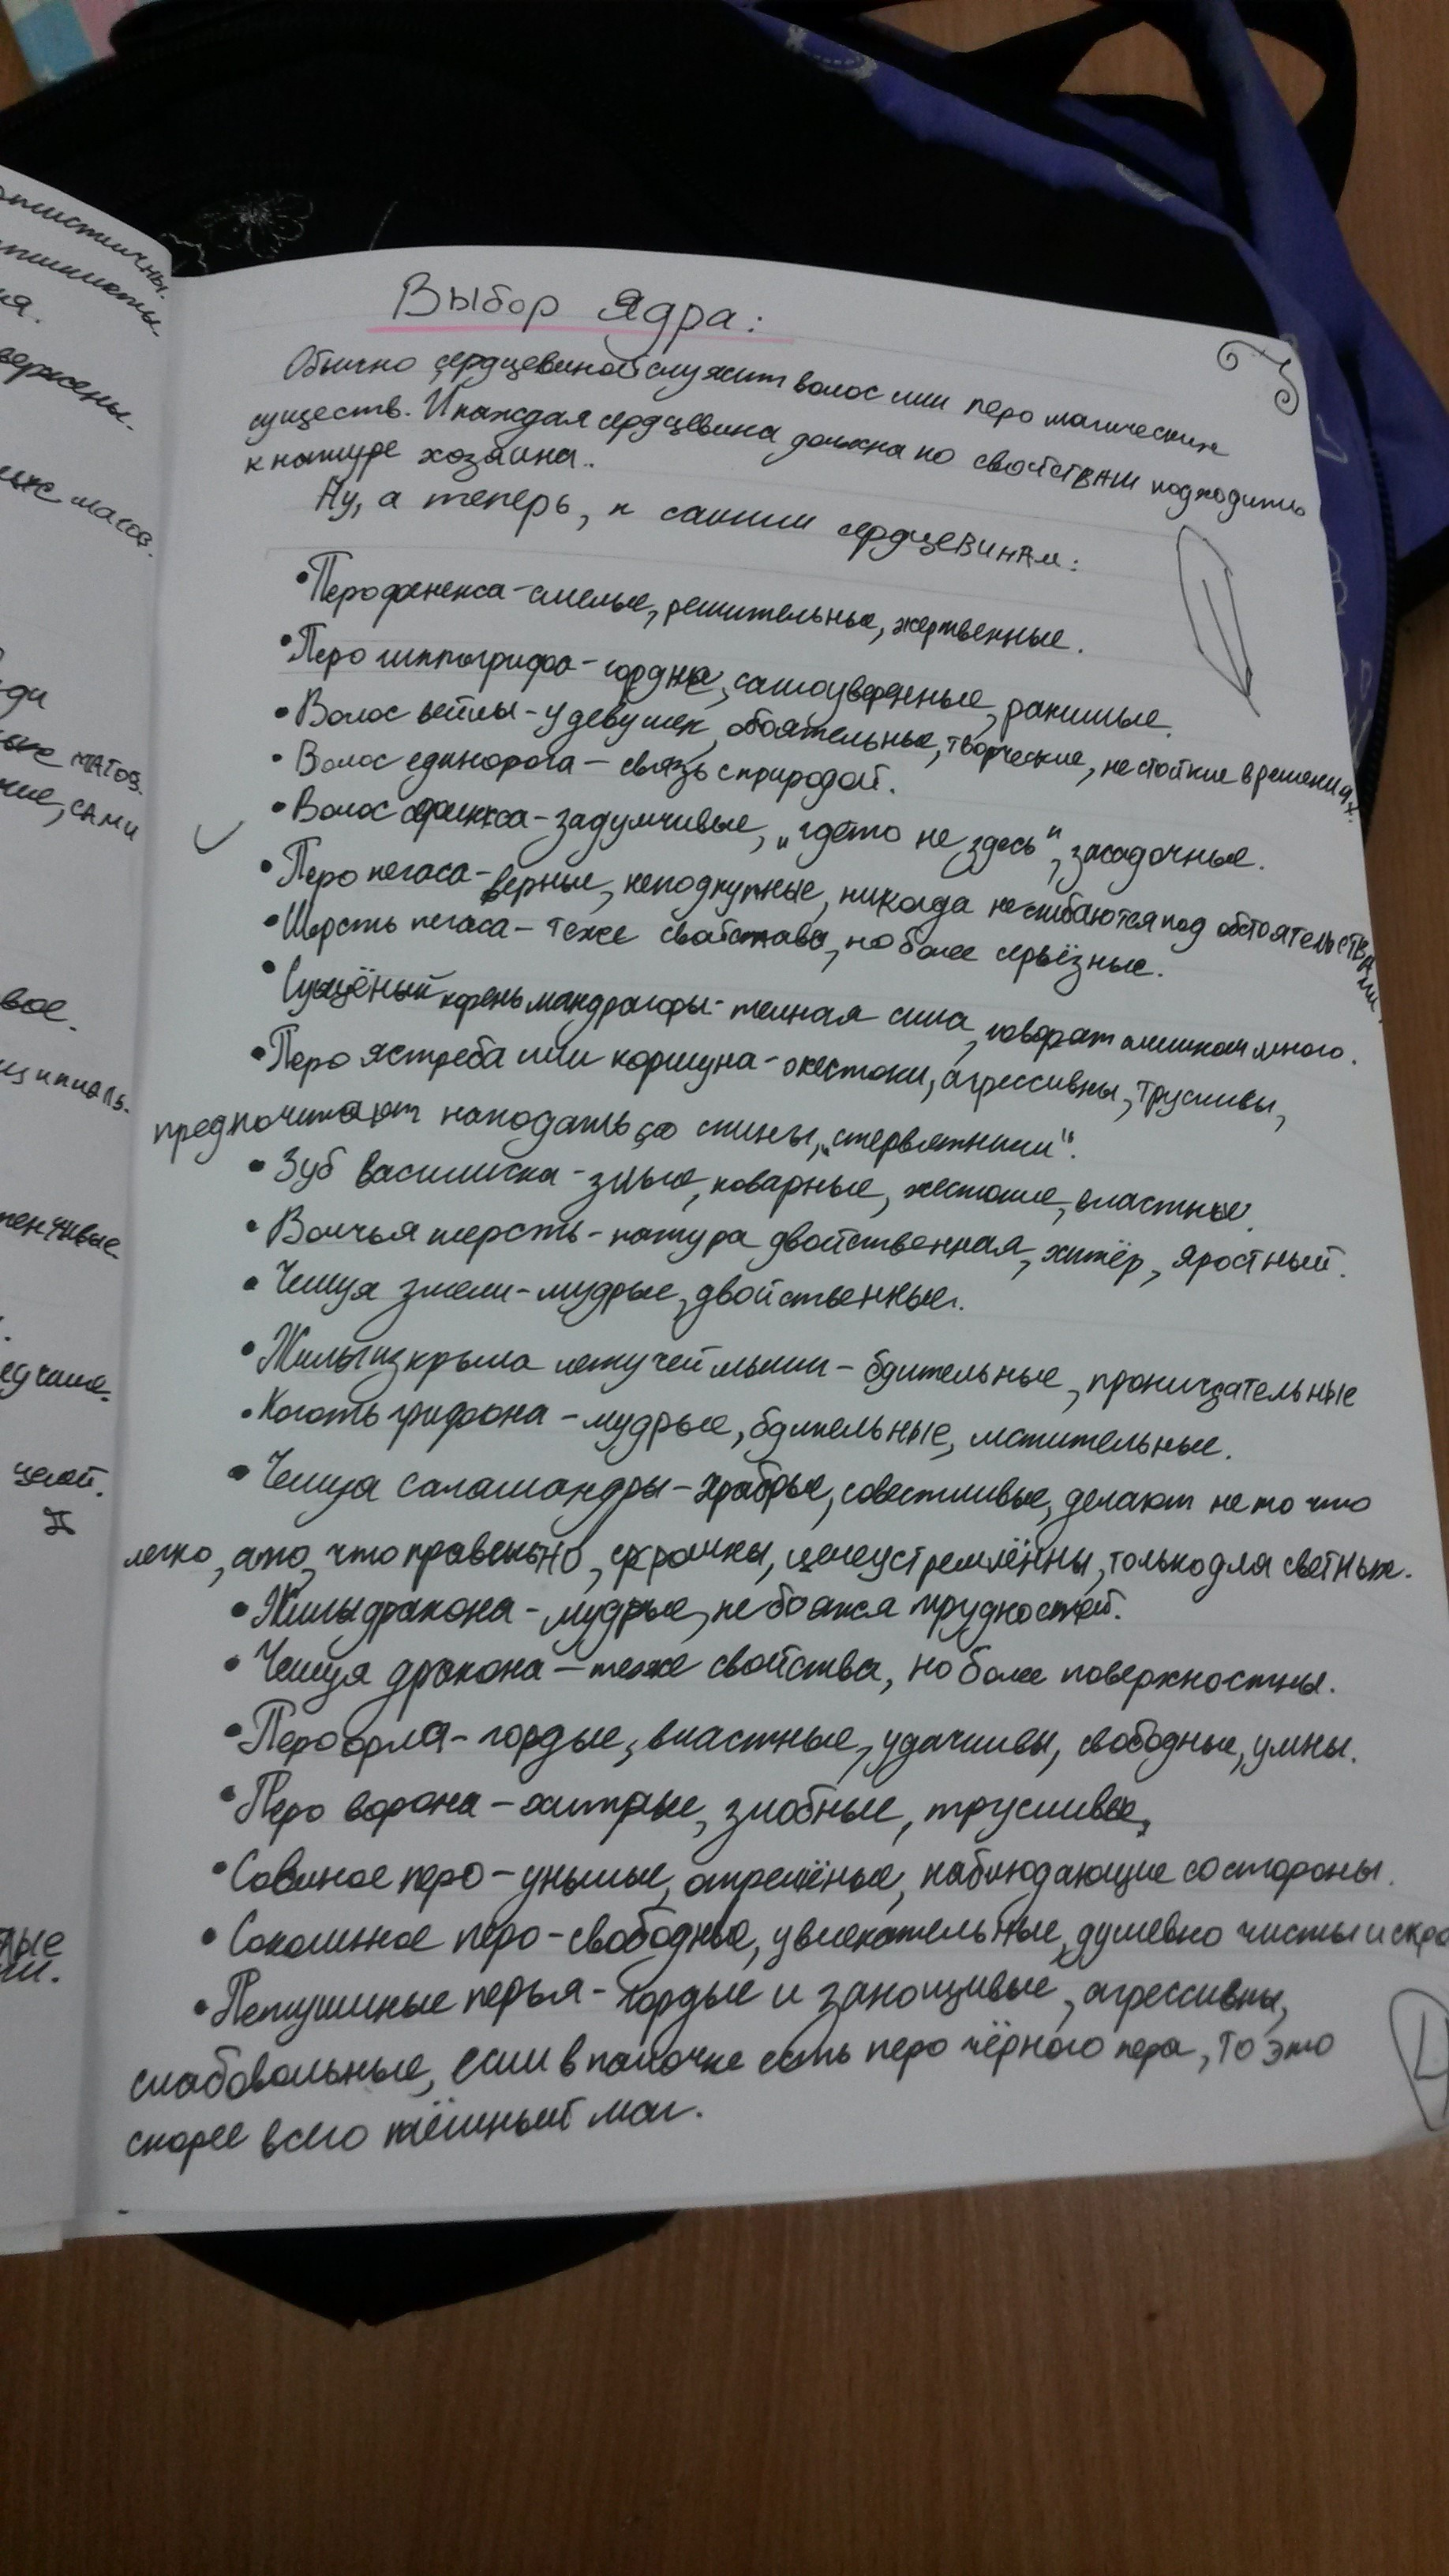 Выбор Ядра:
Обычно сердцевиной служит волос или перо магических
существ. И каждая сердцевина должна по свойствам подходить
к натуре хозяина.
Ну, а теперь, к самим сердцевинам:
• Перо феникса - смелые, решительные, жертвенные.
• Перо гиппогрифа - горды, самоуверенные, ранимые.
• Волос вейлы - у девушек, обаятельные, творческие, не стойкие в решениях.
• Волос единорога - связь с природой.
• Волос сфинкса - задумчивые, „где то не здесь", загадочные.
• Перо пегаса - верные, неподкупные, никогда не сгибаются под обстоятельствами.
• Шерсть пегаса - теже свойства, но более серьёзные.
• Сушёный корень мандрагоры - темная сила, говорят слишком много.
• Перо ястреба или коршуна - жестоки, агрессивны, трусливы,
предпочитают нападать со спины, „стервятники".
• Зуб василиска - злые, коварные, жестокие, властные.
• Волчья шерсть - натура двойственная, хитёр, яростный.
• Чешуя змеи - мудрые, двойственные.
• Жилы из крыла летучей мыши - бдительные, проницательные
• Коготь грифона - мудрые, бдительные, мстительные.
• Чешуя саламандры - храбрые, совестливые, делают не то что
легко, а то, что правильно, скромны, целеустремлённы, только для светлых.
• Жилы дракона - мудрые, не боятся трудностей.
• Чешуя дракона - теже свойства, но более поверхностны.
• Перо орла - гордые, властные, удачливы, свободные, умны.
• Перо ворона - хитрые, злобные, трусливые,
• Совиное перо - унылые, отрешёные, наблюдающие со стороны.
• Соколинное перо - свободные, увлекательные, душевно чисты и скро
• Петушиные перья - гордые и заносчивые, агрессивны,
слабовольные, если в палочке есть перо чёрного пера, то это
скорее всего тёмный маг.